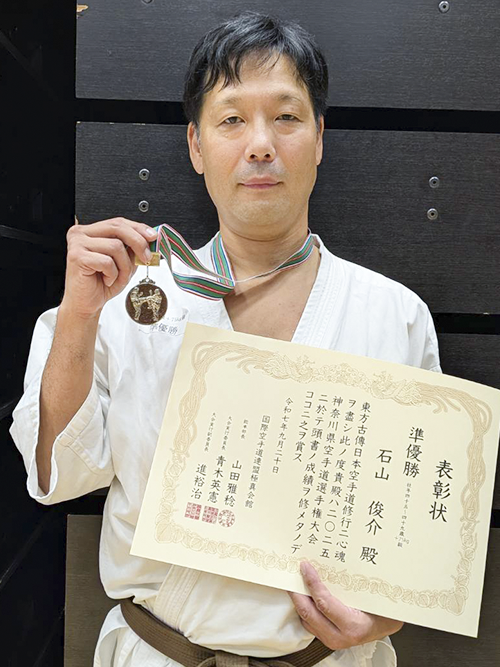 表彰状
準優勝
石山 俊介 殿
東方古傳日本空手道修行ニ心魂
ヲ盡シ此ノ度貴殿ハ二〇二五
神奈川県空手道選手権大会
ニ於テ頭書ノ成績ヲ修メタノデ
ココニ之ヲ賞ス
令和七年九月二十日
国際空手道連盟極真会館
山田雅稔
青木英憲
進裕治
準優勝